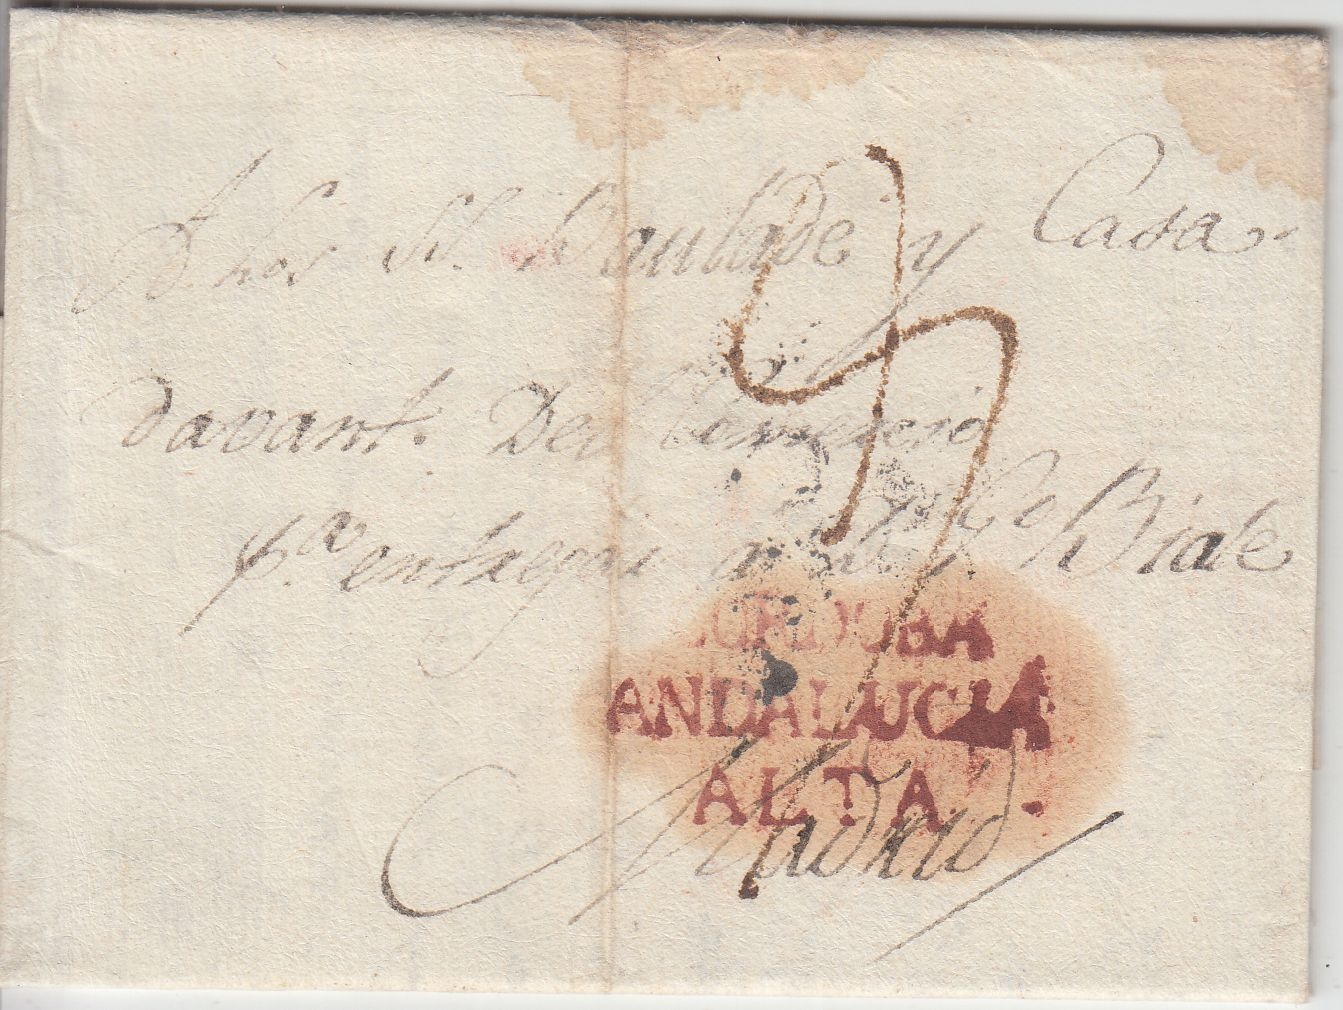 A los Sr. Baulade y Casa
davant. Del Comercio
p.a entregar a
CORDOBA
ANDALUCIA
ALTA
Madrid